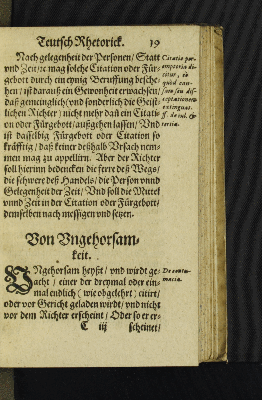 Teutsch Rhetorick. 19
Nach gelegenheit der Personen / Statt
vnd Zeit / ic mag solche Citation oder Für-
gebott durch ein eynig Beruffung besche-
hen / ist darauß ein Gewonheit erwachsen /
daß gemeinglich (vnd sonderlich die Geist-
lichen Richter) nicht mehr daß ein Citatio
on oder Fürgebott / außgehen lassen / Vnd
ist dasselbig Fürgebott oder Citation so
kräfftig / daß keiner deßhalb Vrsach nem-
men mag zu appellirn. Aber der Richter
soll hierinn bedencken die ferr deß Wegs /
die schwere deß Handels / die Person vnnd
Gelegenheit der Zeit / Vnd soll die Mittel
vnnd Zeit in der Citation oder Fürgebott /
demselben nach messigen vnd setzen.
Citatio per-
emptoria di-
citur, eò
quòd cau-
sam seu dis-
ceptationem
extinguat.
ff. de iud. &
Von Vngehorsam-
keit.
VNgehorsam heyßt / vnd wirdt ge-
acht / einer der dreymal oder ein-
mal endlich (wie obgelehrt) citirt /
oder vor Gericht geladen wirdt / vnd nicht
vor dem Richter erscheint / Oder so er er-
De contu-
macia.
C iij scheinet /